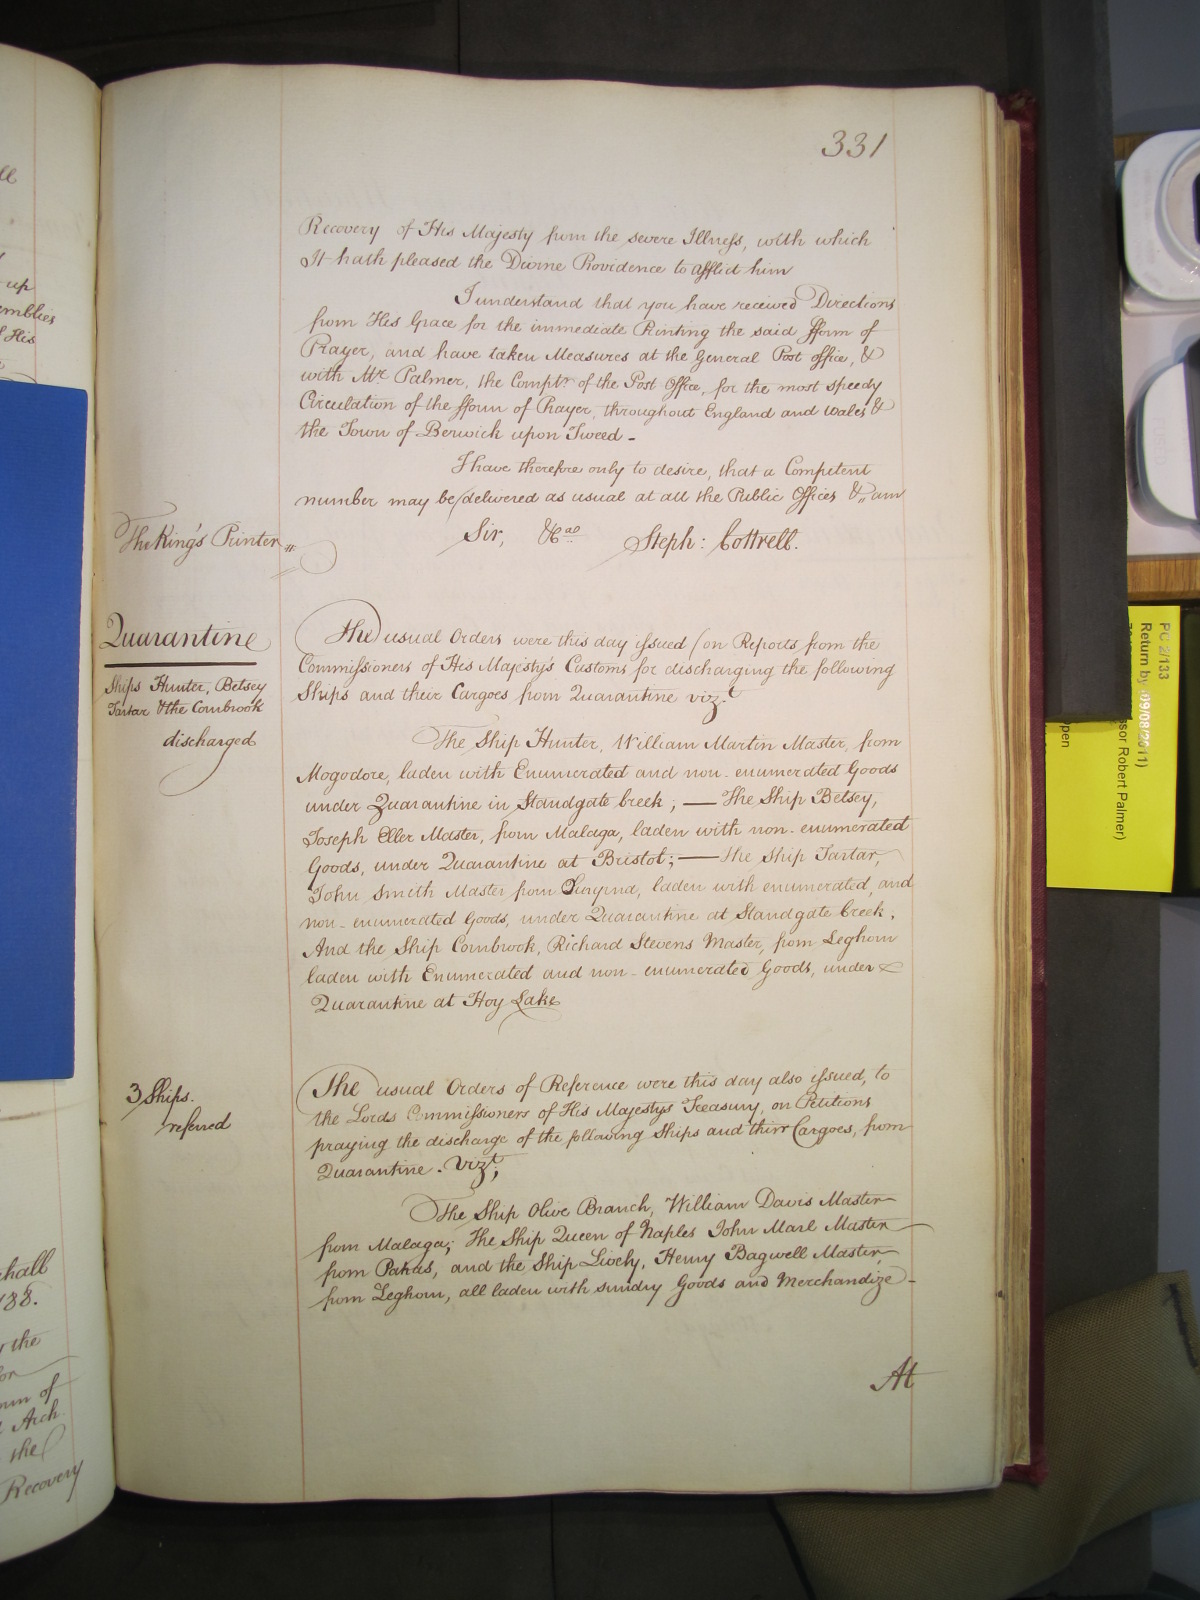 331
Recovery of His Majesty from the severe Illness, with which
It hath pleased the Divine Providence to afflict him
I understand that you have received Directions
from His Grace for the immediate Printing the said fform of
Prayer, and have taken Measures at the General Post office, &
with Mr. Palmer, the Comptr. of the Post Office, for the most speedy
Circulation of the fform of Prayer, throughout England and Wales &
the Town of Berwick upon Tweed -
I have therefore only to desire, that a Competent
number may be delivered as usual at all the Public Offices & am
Sir, &ca. Steph: Cottrell.
The King's Printer
Quarantine
Ships Hunter, Betsey
Tartar & the Cornbrook
discharged
The usual Orders were this day issued (on Reports from the
Commissioners of His Majestys Customs for discharging the following
Ships and their Cargoes from Quarantine vizt.
The Ship Hunter, William Martin Master, from
Mogodore, laden with Enumerated and non-enumerated Goods
under Quarantine in Standgate Creek; — The Ship Betsey,
Joseph Eller Master, from Malaga, laden with non-enumerated
Goods, under Quarantine at Bristol; — The Ship Tartar,
John Smith Master from laden with enumerated, and
non-enumerated Goods, under Quarantine at Standgate Creek,
And the Ship Cornbrook, Richard Stevens Master, from Leghorn
laden with Enumerated and non-enumerated Goods, under
Quarantine at Hoy Lake
3 Ships.
referred
The usual Orders of Reference were this day also issued, to
the Lords Commissioners of His Majestys Treasury, on Petitions
praying the discharge of the following Ships and their Cargoes, from
Quarantine. Vizt;
The Ship Olive Branch, William Davis Master
from Malaga; The Ship Queen of Naples John Marl Master
from and the Ship Lively, Henry Bagwell Master
from Leghorn, all laden with sundry Goods and Merchandize -
At
up
emblies
His
hall
188.
the
of
Arch
the
Recovery
PC 2/133
Return by (09/08/2011)
ssor Robert Palmer)
pen